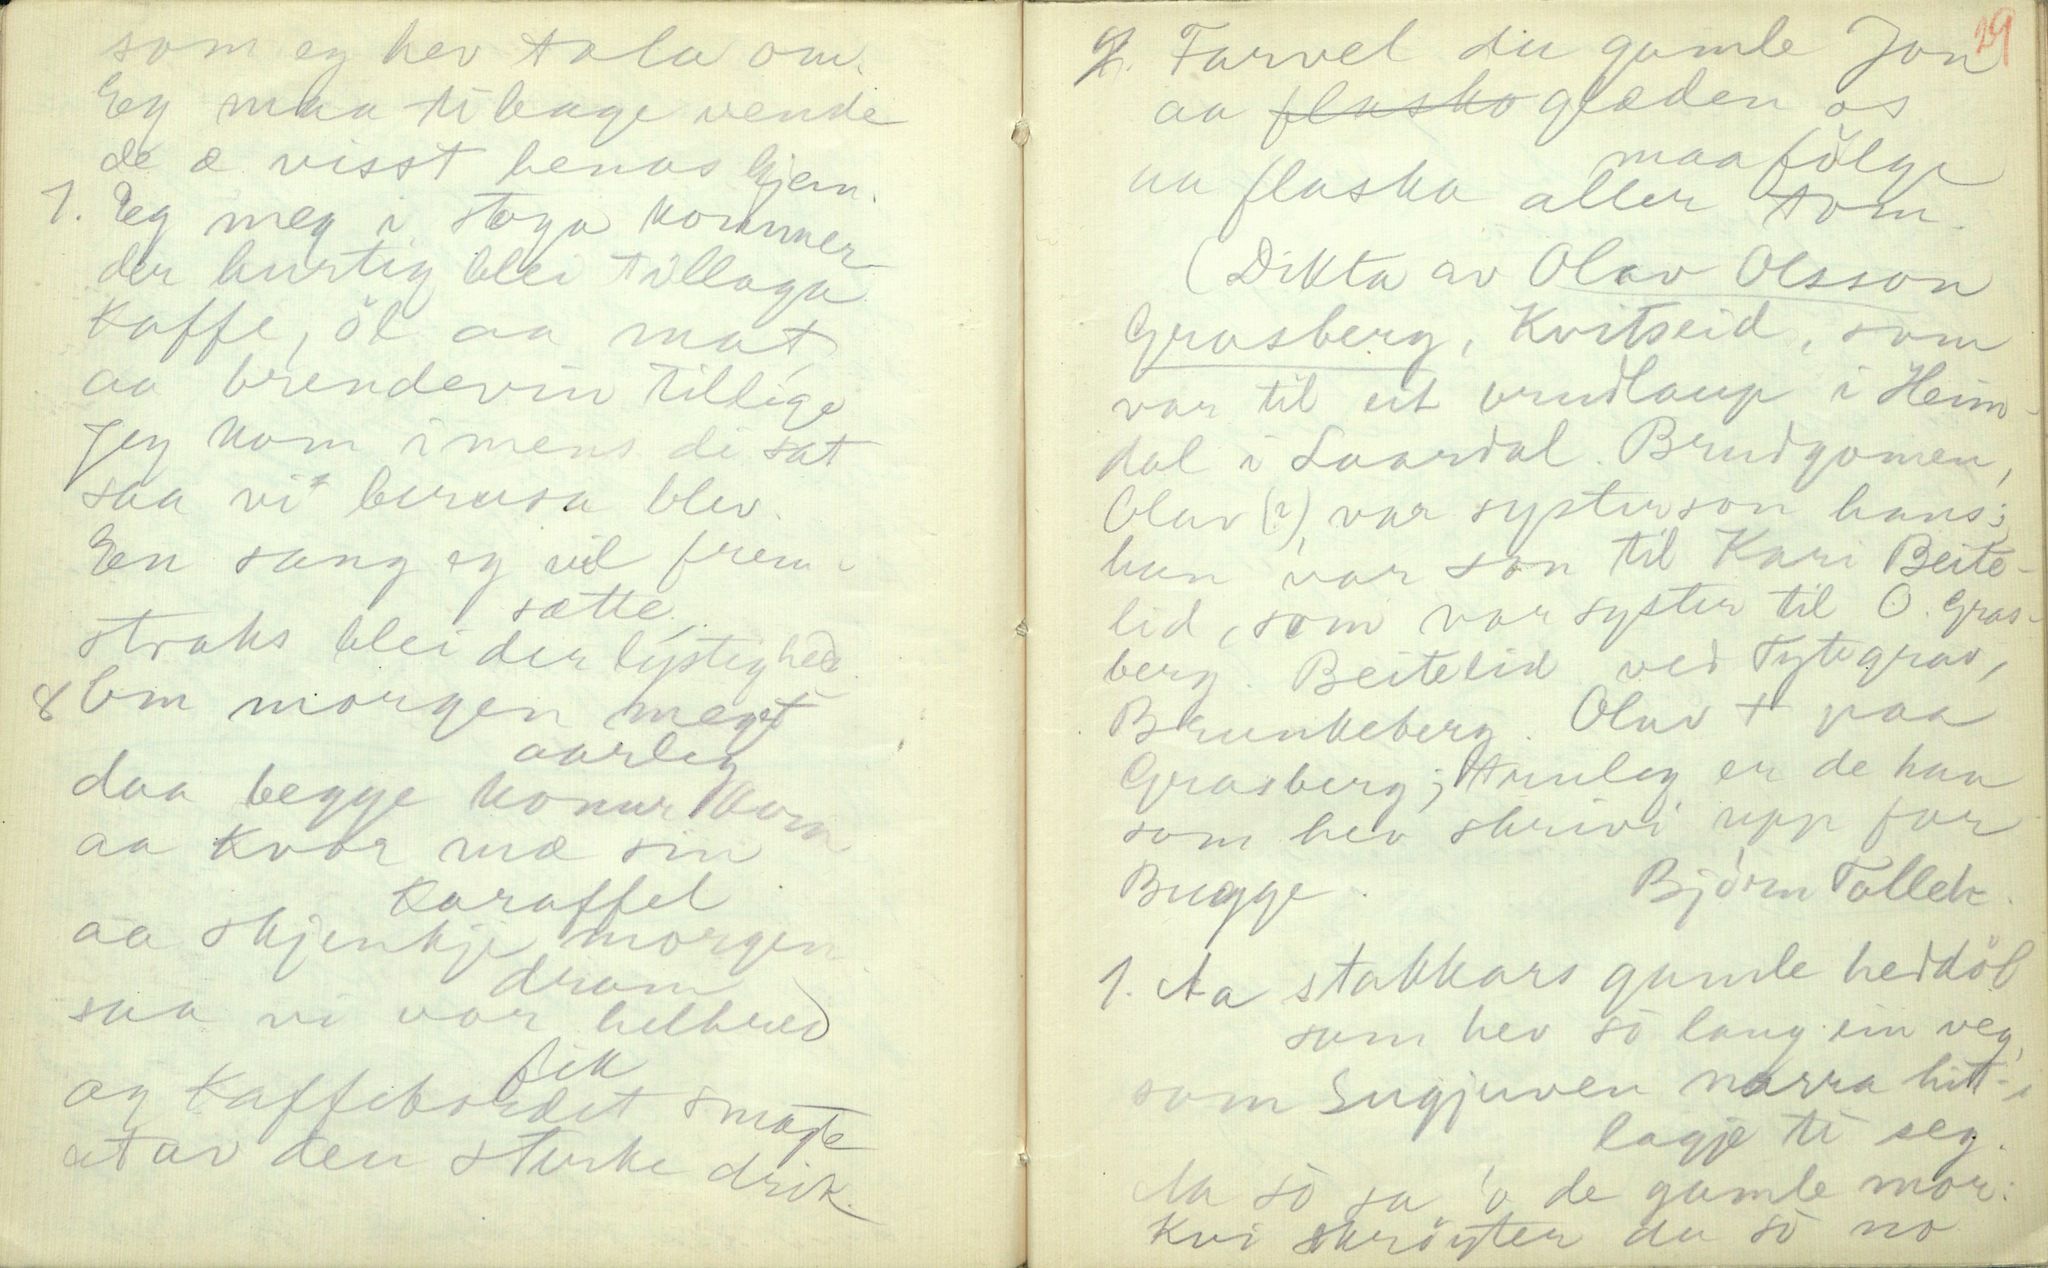 som eg hev tala om.
Eg maa tibage vende
de æ visst henas hjem.
7. Eg meg i stoga kommer
der hurtig blei tillaga
Kaffe, öl aa mat,
aa brendevin tillige
Jeg kom imens di sat
saa vi berusa blev.
Een sang eg vil frem-
sætte,
straks blei der lystighed.
8 Om morgen meget
aarleg
daa begge konur kom
aa kvor mæ sin
Karaffel
aa skjenkje morgen
dram
saa vi vor helbred
fik
og Kaffebordet smagte
at av den sterke drik.
29
9. Farvel du gamle Jon
aa flasko glæden os
maa fölge
aa flaska aller tom.
(Dikta av Olav Olsson
Grasberg, Kvitseid, som
var til eit brudlaup i Heim-
dal i Laardal. Brudgomen,
Olav (?), var systerson hans;
han var son til Kari Beite-
lid, som var syster til O. Gras-
berg. Beitelid ved Tytegrav,
Brunkeberg. Olav + paa
Grasberg; truleg er de han
som hev skrivi upp for
Bugge.
Björn Tallek.
1. Aa stakkars gamle heddöl
som hev so lang ein veg,
som Sugjuven narra hit-i
lagje ti seg.
Aa so sa 'o de gamle mor:
Kvi skröyter du so no